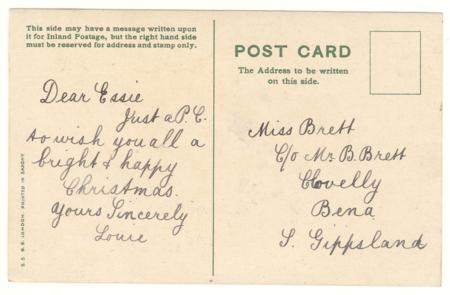 This side may have a message written upon
it for Inland Postage, but the right hand side
must be reserved for address and stamp only.
Dear Essie
Just a P.C.
to wish you all a
bright & happy
Christmas.
Yours Sincerely
Louie
POST CARD
The Address to be written
on this side.
Miss Brett
C/o Mr. B. Brett
Clovelly
Bena
S. Gippsland
LONDON. PRINTED IN SAXONY